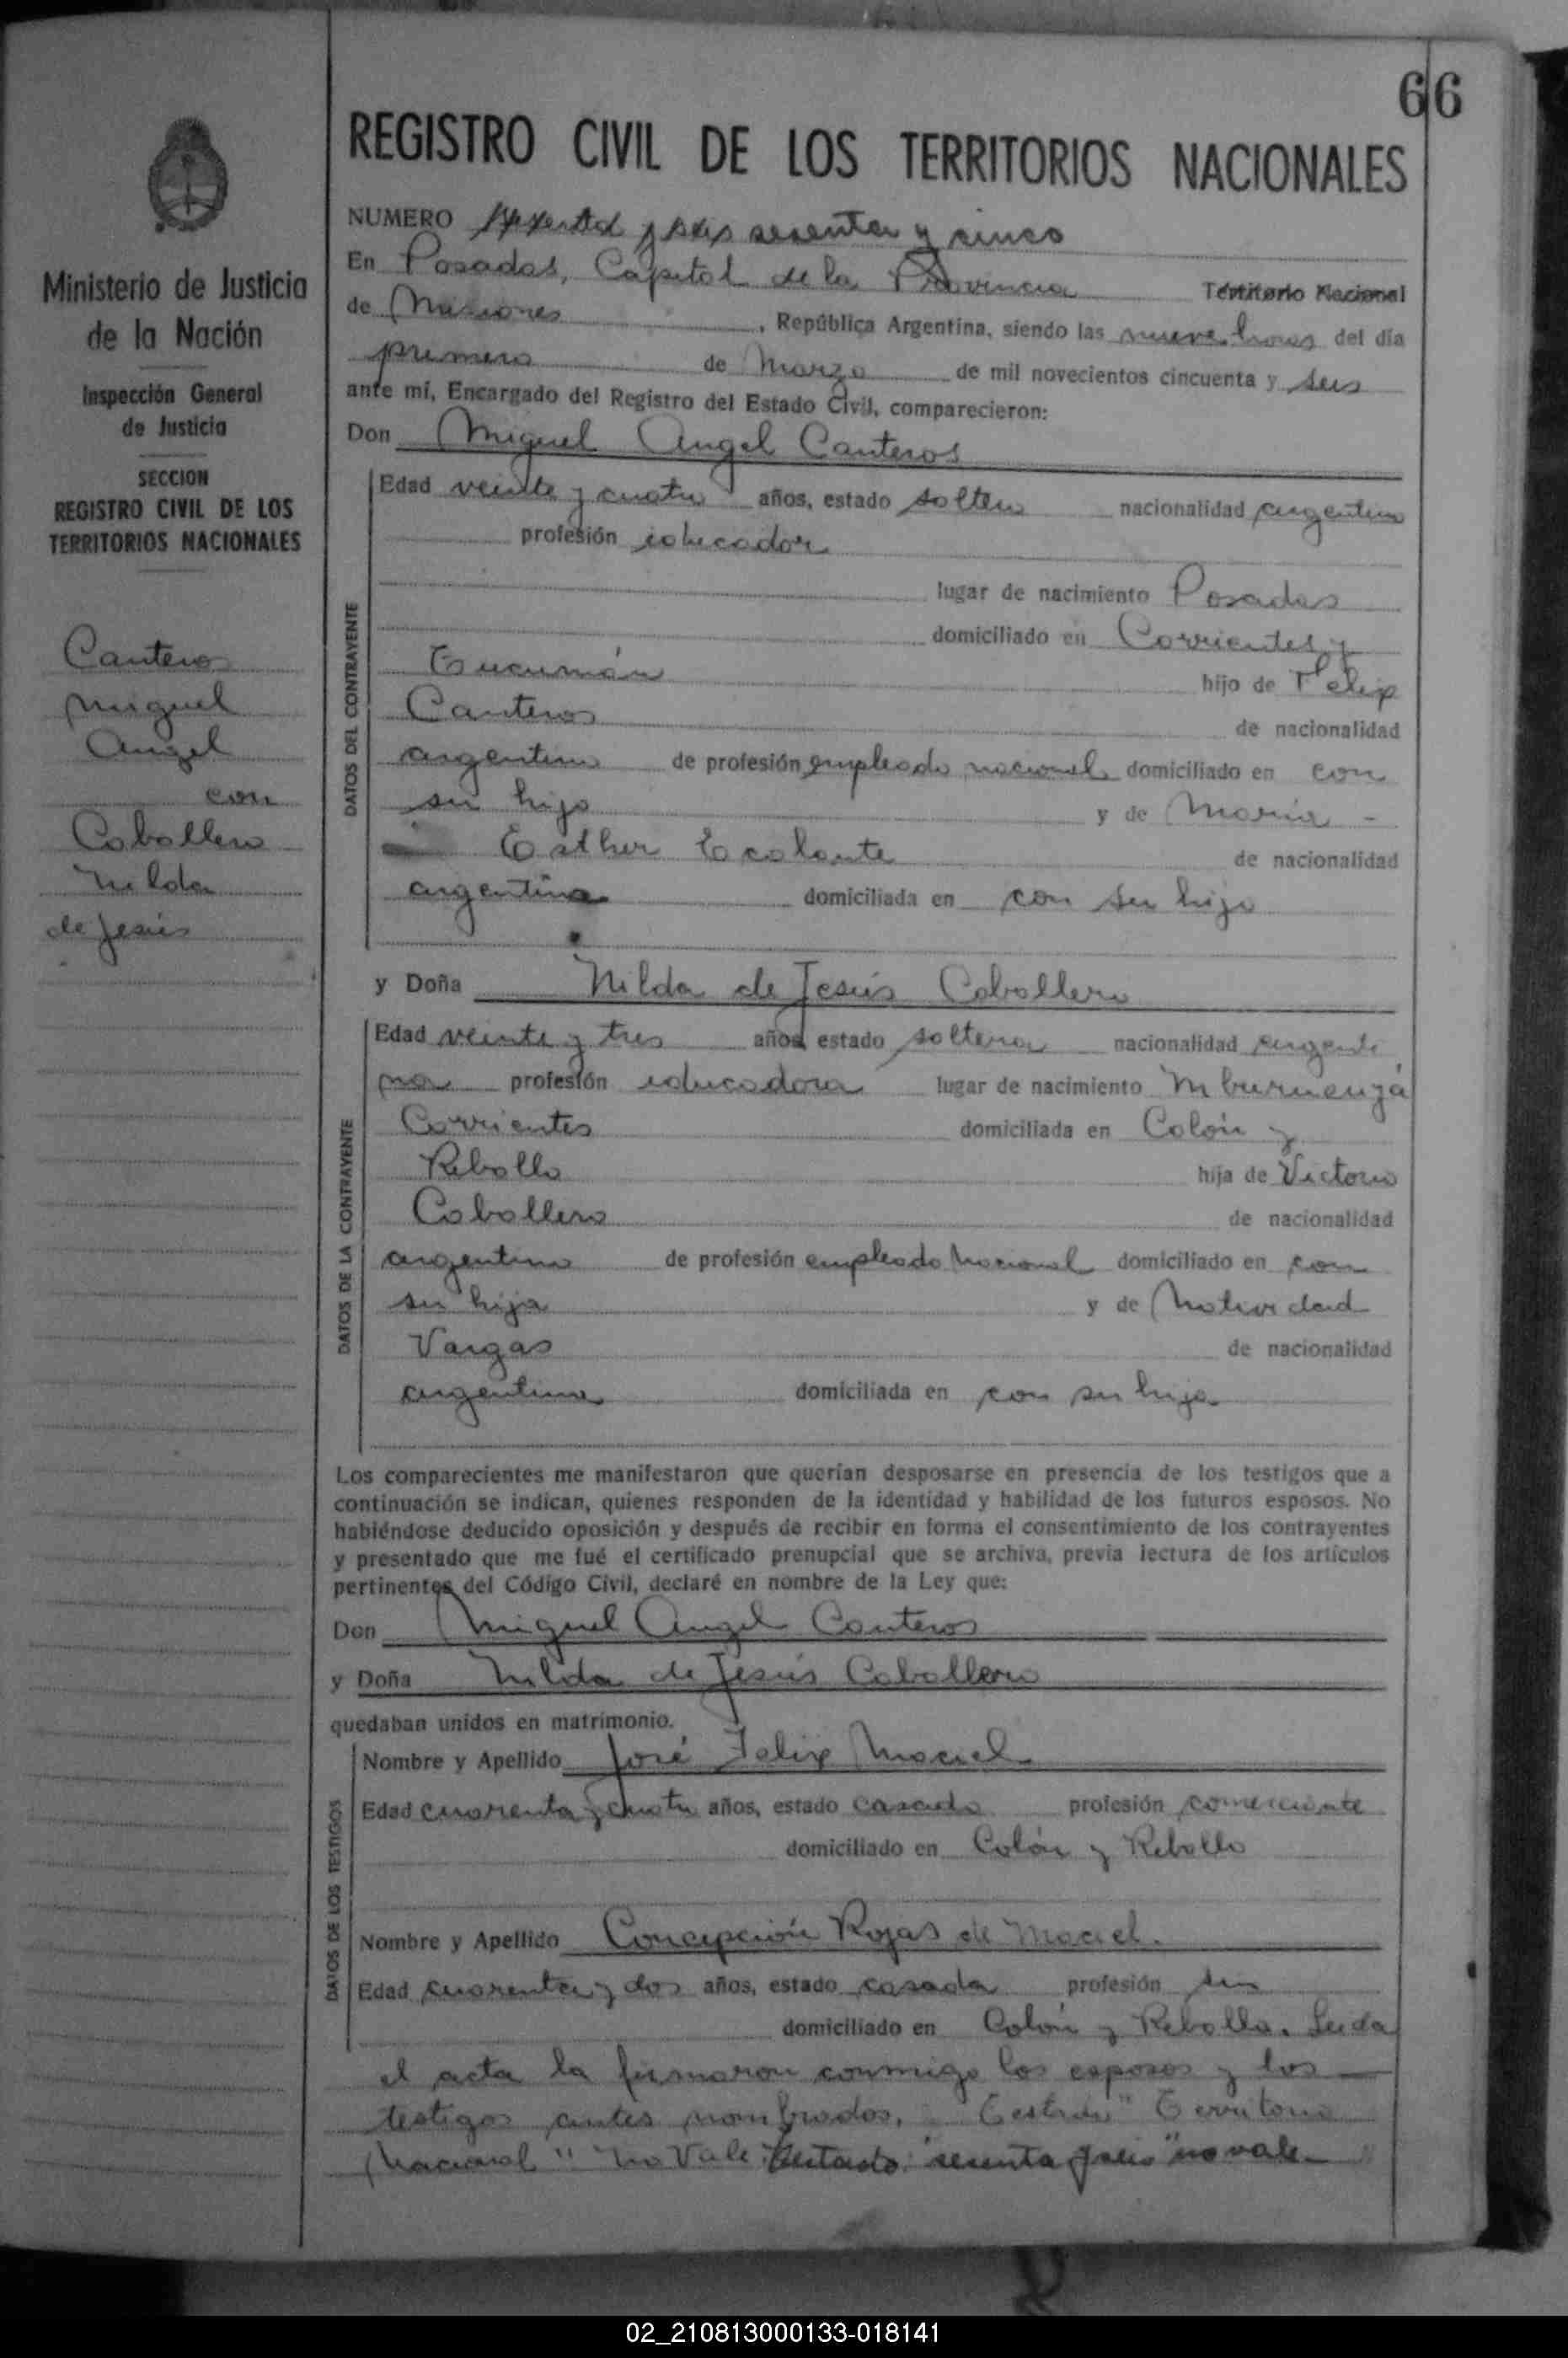 66
REGISTRO CIVIL DE LOS TERRITORIOS NACIONALES
Ministerio de Justicia
de la Nación
Inspección General
de Justicia
SECCION
REGISTRO CIVIL DE LOS
TERRITORIOS NACIONALES
Canteros
Miguel
Angel
con
Caballero
Nilda
de Jesús
NUMERO sesenta y seis sesenta y cinco
En Posadas, Capital de la Provincia Territorio Nacional
de Misiones , República Argentina, siendo las nueve horas del día
primero de Marzo de mil novecientos cincuenta y seis
ante mí, Encargado del Registro del Estado Civil, comparecieron:
Don Miguel Angel Canteros
DATOS DEL CONTRAYENTE
Edad veinte y cuatro años, estado soltero nacionalidad argentino
profesión educador
lugar de nacimiento Posadas
domiciliado en Corrientes y
Tucumán hijo de Felix
Canteros de nacionalidad
argentino de profesión empleado nacional domiciliado en con
su hijo y de María -
Esther Escalante de nacionalidad
argentina domiciliada en con su hijo
y Doña Nilda de Jesús Caballero
DATOS DE LA CONTRAYENTE
Edad veinte y tres años, estado soltera nacionalidad argenti
na profesión educadora lugar de nacimiento Mburucuyá
Corrientes domiciliada en Colón y
Rebollo hija de Victorio
Caballero de nacionalidad
argentino de profesión empleado Nacional domiciliado en con
su hija y de Natividad
Vargas de nacionalidad
argentina domiciliada en con su hija
Los comparecientes me manifestaron que querían desposarse en presencia de los testigos que a
continuación se indican, quienes responden de la identidad y habilidad de los futuros esposos. No
habiéndose deducido oposición y después de recibir en forma el consentimiento de los contrayentes
y presentado que me fué el certificado prenupcial que se archiva, previa lectura de los artículos
pertinentes del Código Civil, declaré en nombre de la Ley que:
Don Miguel Angel Canteros
y Doña Nilda de Jesús Caballero
quedaban unidos en matrimonio.
DATOS DE LOS TESTIGOS
Nombre y Apellido José Felix Maciel
Edad cuarenta y cuatro años, estado casado profesión comerciante
domiciliado en Colón y Rebollo
Nombre y Apellido Concepción Rojas de Maciel.
Edad cuarenta y dos años, estado casada profesión sin
domiciliado en Colón y Rebollo. Leida
el acta la firmaron conmigo los esposos y los
testigos antes nombrados, Testado "Territorio
Nacional" No Vale. Testado: "sesenta y seis" no vale
02_210813000133-018141